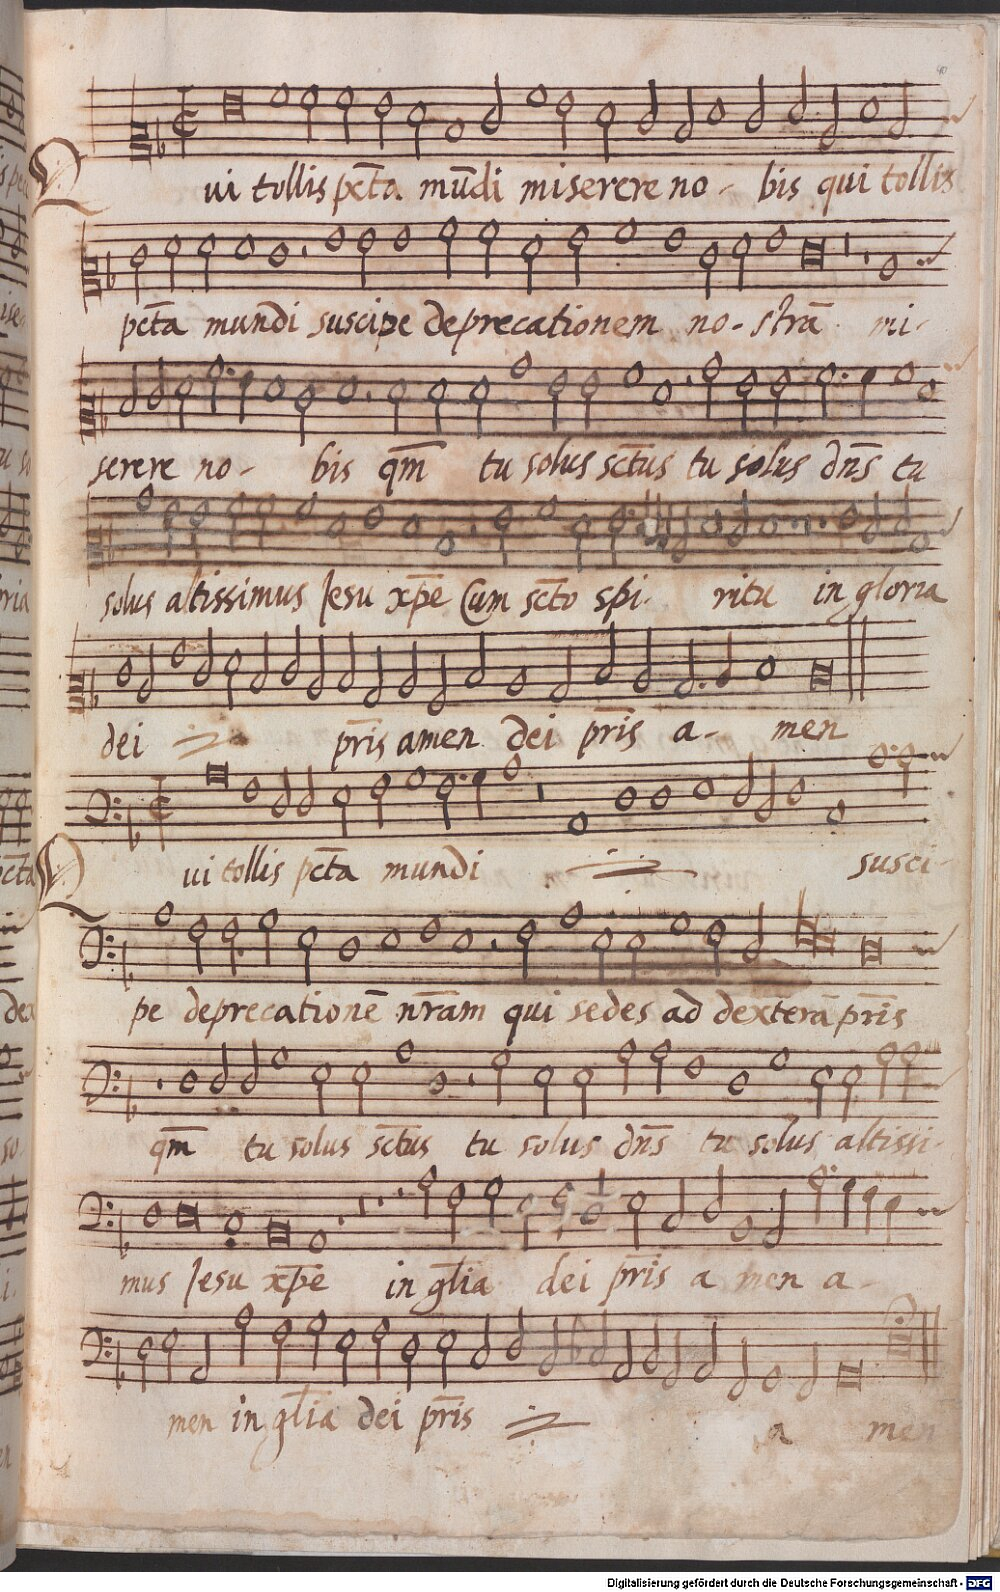 40
Qui tollis pc̄ta mūdi miserere no - bis qui tollis
pc̄ta mundi suscipe deprecationem no - strā mi -
serere no - bis qm̄ tu solus sc̄tus tu solus dn̄s tu
solus altissimus Jesu xp̄e Cum sc̄to spi - ritu in gloria
dei pr̄is amen dei pr̄is a - men
Qui tollis pc̄ta mundi susci -
pe deprecationē nr̄am qui sedes ad dexterā pr̄is
qm̄ tu solus sc̄tus tu solus dn̄s tu solus altissi -
mus Jesu xp̄e in gl̄ia dei pr̄is a men a -
men in gl̄ia dei pr̄is a men
Digitalisierung gefördert durch die Deutsche Forschungsgemeinschaft - DFG